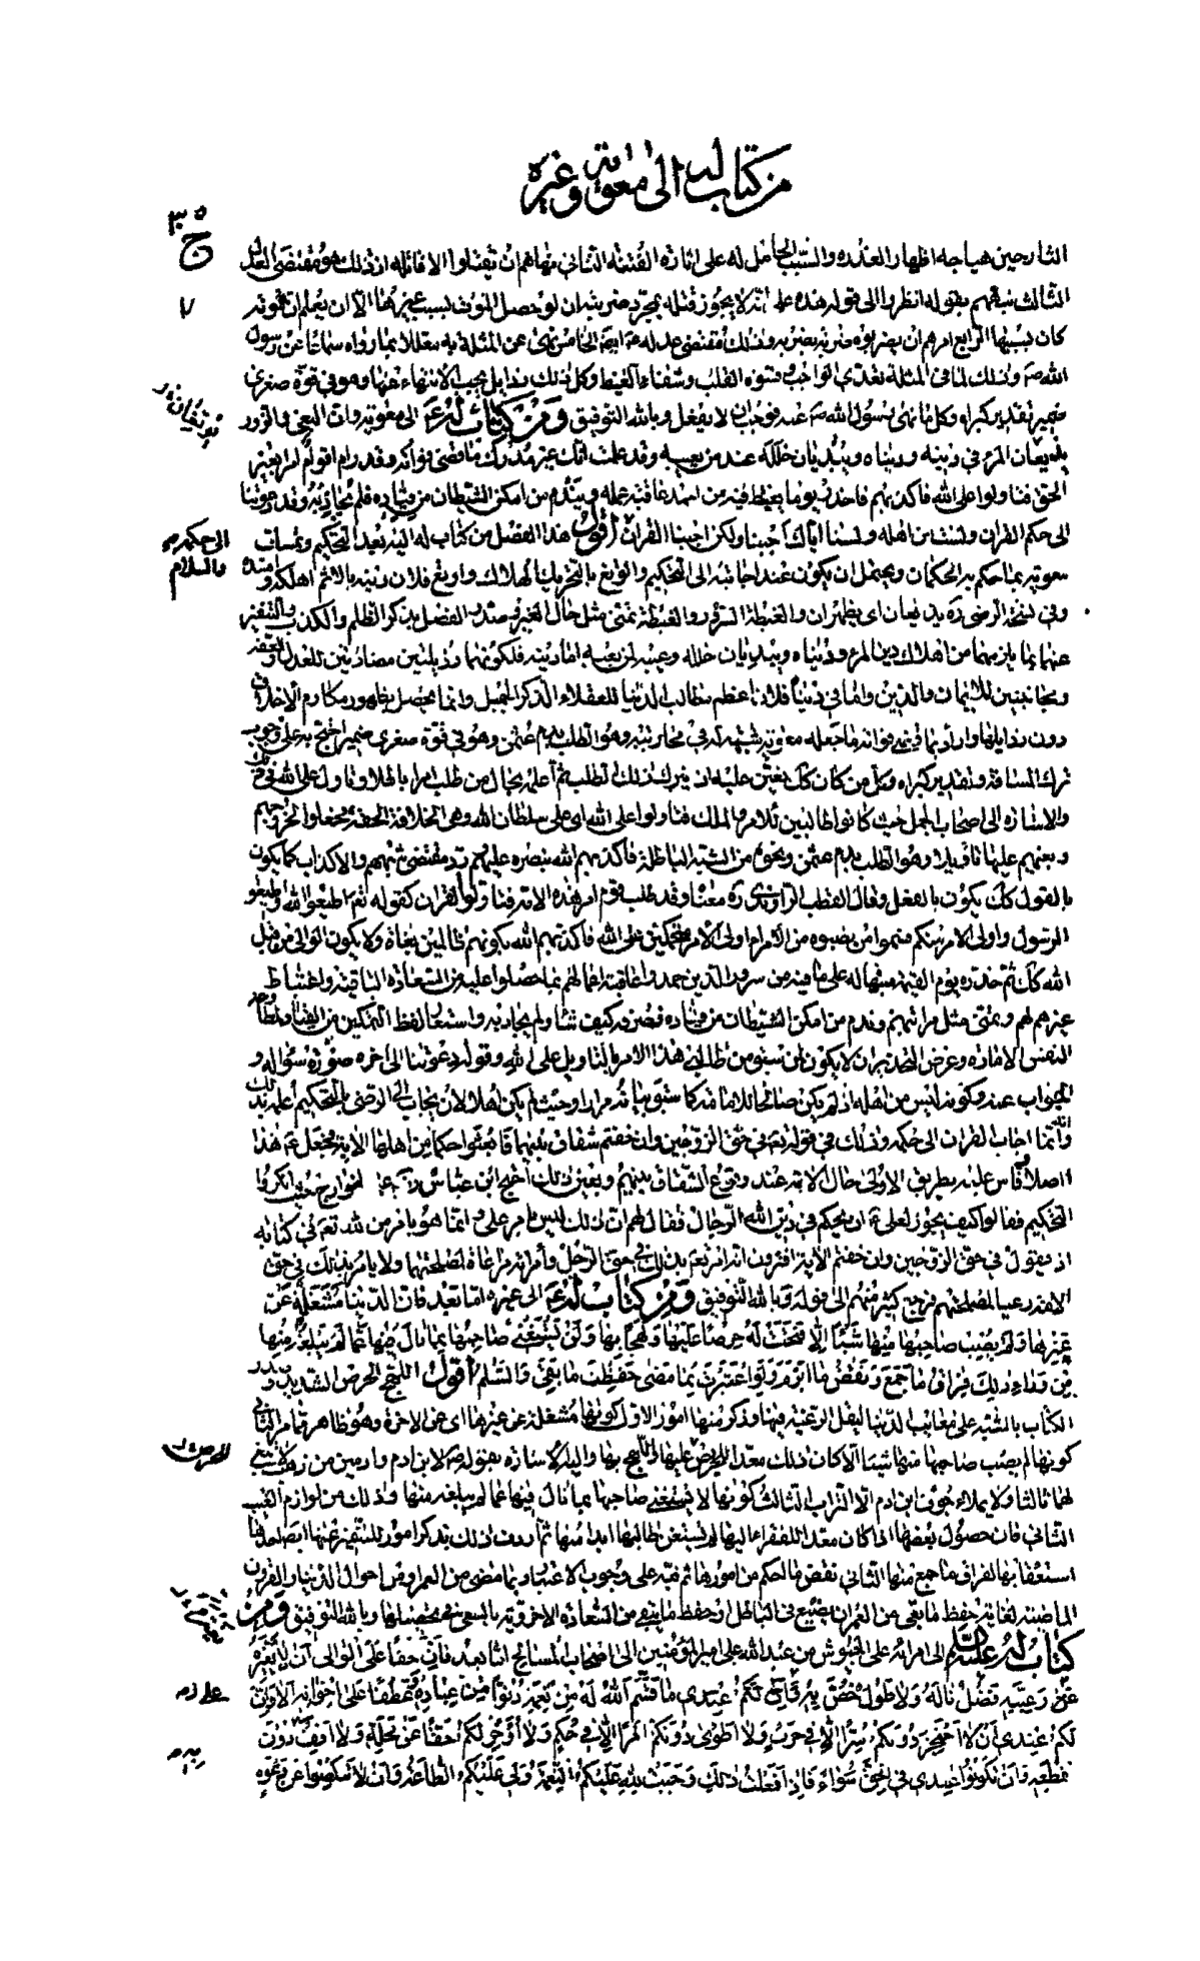 من كتاب له الى معوية وغيره
ج ٣٥
٧
الثارحين هياجه اظهار العذره والسبب الحامل له على اثارة الفتنة الثاني نهاهم ان يقتلوا الا قاتله اذ ذلك هو مقتضى العدل
الثالث نبههم بقوله انظروا الى قوله هذه على انه لا يجوز قتله بمجرد ضربته ان لو حصل الموت بسبب غيرها الا ان يعلم ان موته
كان بسببها الرابع امرهم ان يضربوه ضربة بضربة وذلك مقتضى عدله ايضا الخامس نهى عن المثلة به معللا بما رواه سماعا عن رسول
الله ص وذلك لما في المثلة من تعدي الواجب وقسوة القلب وشفاء الغيظ وكل ذلك رذايل يجب الانتهاء عنها وهو في قوة صغرى
ضمير تقدير كبراه وكل ما نهى رسول الله ص عنه فوجب ان لا يفعل وبالله التوفيق ومن كتاب له ع الى معوية وان البغي والزور
يذيعان المرء في دينه ودنياه ويبديان خلله عند من يعيبه وقد علمت انك غير مدرك ما قضى فواته وقد رام اقوام امرا بغير
الحق فتاولوا على الله فاكذبهم فاحذر يوما يغتبط فيه من احمد عاقبة عمله ويندم من امكن الشيطان من قياده فلم يجاذبه وقد دعوتنا
الى حكم القران ولست من اهله ولسنا اياك اجبنا ولكن اجبنا القران الى حكمه والسلام اقول هذا الفصل من كتاب له اليه بعد التحكيم وتمسك
معوية بما حكم به الحكمان ويحتمل ان يكون عند اجابته الى التحكيم والوتغ بالتحريك الهلاك واوتغ فلان دينه بالاثم اهلكه وافسده
وفي نسخة الرضي ره يذيعان اي يظهران والغبطة السرور والغبطة تمنى مثل حال الغير وصدر الفصل بذكر الظلم والكذب والتنفير
عنهما بما يلزمهما من اهلاك دين المرء ودنياه ويبديان خلله وعيبه لمن يعيبه اما دينه فلكونهما رذيلتين مضادتين للعدل والعفة
ومجانبتين للايمان والدين واما في دنياه فلان اعظم مطالب الدنيا للعقلاء الذكر الجميل وانما يحصل بظهور مكارم الاخلاق
دون رذايلها واراد بما قضى فواته ما جعله معوية شبهة له في محاربته وهو الطلب بدم عثمن وهو في قوة صغرى ضمير احتج به على وجوب
ترك المشاقة وتقدير كبراه وكل من كان كك يتعين عليه ان يترك ذلك الطلب ثم اعلمه بحال من طلب امرا باطلا وتاول على الله في ذلك
والاشارة الى اصحاب الجمل حيث كانوا طالبين للامر والملك فتاولوا على الله اي على سلطان الله وهي الخلافة الحقة فجعلوا لخروجهم
وبغيهم عليها تاويلا وهو الطلب بدم عثمن ونحوه من الشبه الباطلة فاكذبهم الله بنصره عليهم ورد مقتضى شبههم والاكذاب كما يكون
بالقول كك يكون بالفعل وقال القطب الراوندي ره معناه وقد طلب قوم امر هذه الامة فتاولوا القران كقوله تعم اطيعوا الله واطيعوا
الرسول واولى الامر منكم فسموا من نصبوه من الامراء اولى الامر متحكمين على الله فاكذبهم الله بكونهم ظالمين بغاة ولا يكون الوالي من قبل
الله كك ثم حذره يوم القيمة منبها له على ما فيه من سرور الذين حمدوا عاقبة اعمالهم بما حصلوا عليه من السعادة الباقية واغتباط
غيرهم لهم وتمنى مثل مراتبهم وندم من امكن الشيطان من قياده فصرفه كيف شاء ولم يجاذبه واستعار لفظ التمكين من القياد لطاعة
النفس الامارة وغرض التحذير ان لا يكون كمن سبق من طالبي هذا الامر بالتاويل على الله وقوله وقد دعوتنا الى اخره صورة سؤاله و
الجواب عنه وكونه ليس من اهله اذ لم يكن صالحا للامامة كما سبق بيانه مرارا وحيث لم يكن اهلا لان يجاب الى الرضى بالتحكيم اعلمه بذلك
وانه انما اجاب القران الى حكمه وذلك في قوله تعم في حق الزوجين وان خفتم شقاق بينهما فابعثوا حكما من اهلها الاية فجعل ع هذا
اصلا وقاس عليه بطريق الاولى حال الامة عند وقوع الشقاق بينهم وبعين ذلك احتج ابن عباس رض على الخوارج حيث انكروا
التحكيم فقالوا كيف يجوز لعلى ع ان يحكم في دين الله الرجال فقال لهم ان ذلك ليس بامر على وانما هو بامر من الله تعم في كتابه
اذ يقول في حق الزوجين وان خفتم الاية افترون انه امر تعم بذلك في حق الرجل وامراته مراعاة لمصلحتهما ولا يامر بذلك في حق
الامة رعيا لمصلحتهم فرجع كثير منهم الى قوله وبالله التوفيق ومن كتاب له ع الى غيره اما بعد فان الدنيا مشغلة عن
غيرها ولم يصب صاحبها منها شيئا الا فتحت له حرصا عليها ولهجا بها ولن يستغني صاحبها بما نال فيها عما لم يبلغه منها
ومن وراء ذلك فراق ما جمع ونقض ما ابرم ولو اعتبرت بما مضى حفظت ما بقي والسلام اقول اللهج الحرص الشديد وصدر
الكتاب بالتنبيه على معائب الدنيا ليقل الرغبة فيها وذكر منها امورا الاول كونها مشغلة عن غيرها اي عن الاخرة وهو ظاهر مما مر الثاني
كونها لم يصب صاحبها منها شيئا الا كان ذلك معدا للحرص عليها واللهج بها واليه الاشارة بقوله ص لو كان لابن ادم واديين من ذهب لابتغى
لهما ثالثا ولا يملاء جوف ابن ادم الا التراب الثالث كونها لا يستغني صاحبها بما نال فيها عما لم يبلغه منها وذلك من لوازم العيب
الثاني فان حصول بعضها اذا كان معدا للفقر اليها لم يستغن طالبها ابدا منها ثم اردف ذلك بذكر امور للتنفير عنها ايضا احدها
استعقابها لفراق ما جمع منها الثاني نقض ما احكم من امورها ثم نبه على وجوب الاعتبار بما مضى من العمر او من احوال الدنيا والقرون
الماضية لغاية حفظ ما بقي من العمر ان يضيع في الباطل او حفظ ما يبقى من السعادة الاخروية بالسعي في تحصيلها وبالله التوفيق ومن
كتاب له عليه السلام الى امرائه على الجيوش من عبد الله على امير المؤمنين الى اصحاب المسالح اما بعد فان حقا على الوالي ان لا يغيره
على رعيته فضل ناله ولا طول خص به وان يزيده ما قسم الله له من نعمه دنوا من عباده وعطفا على اخوانه الا وان
لكم عندي ان لا احتجز دونكم سرا الا في حرب ولا اطوى دونكم امرا الا في حكم ولا اؤخر لكم حقا عن محله ولا اقف به دون
مقطعه وان تكونوا عندي في الحق سواء فاذا فعلت ذلك وجبت لله عليكم النعمة ولى عليكم الطاعة وان لا تنكصوا عن دعوة